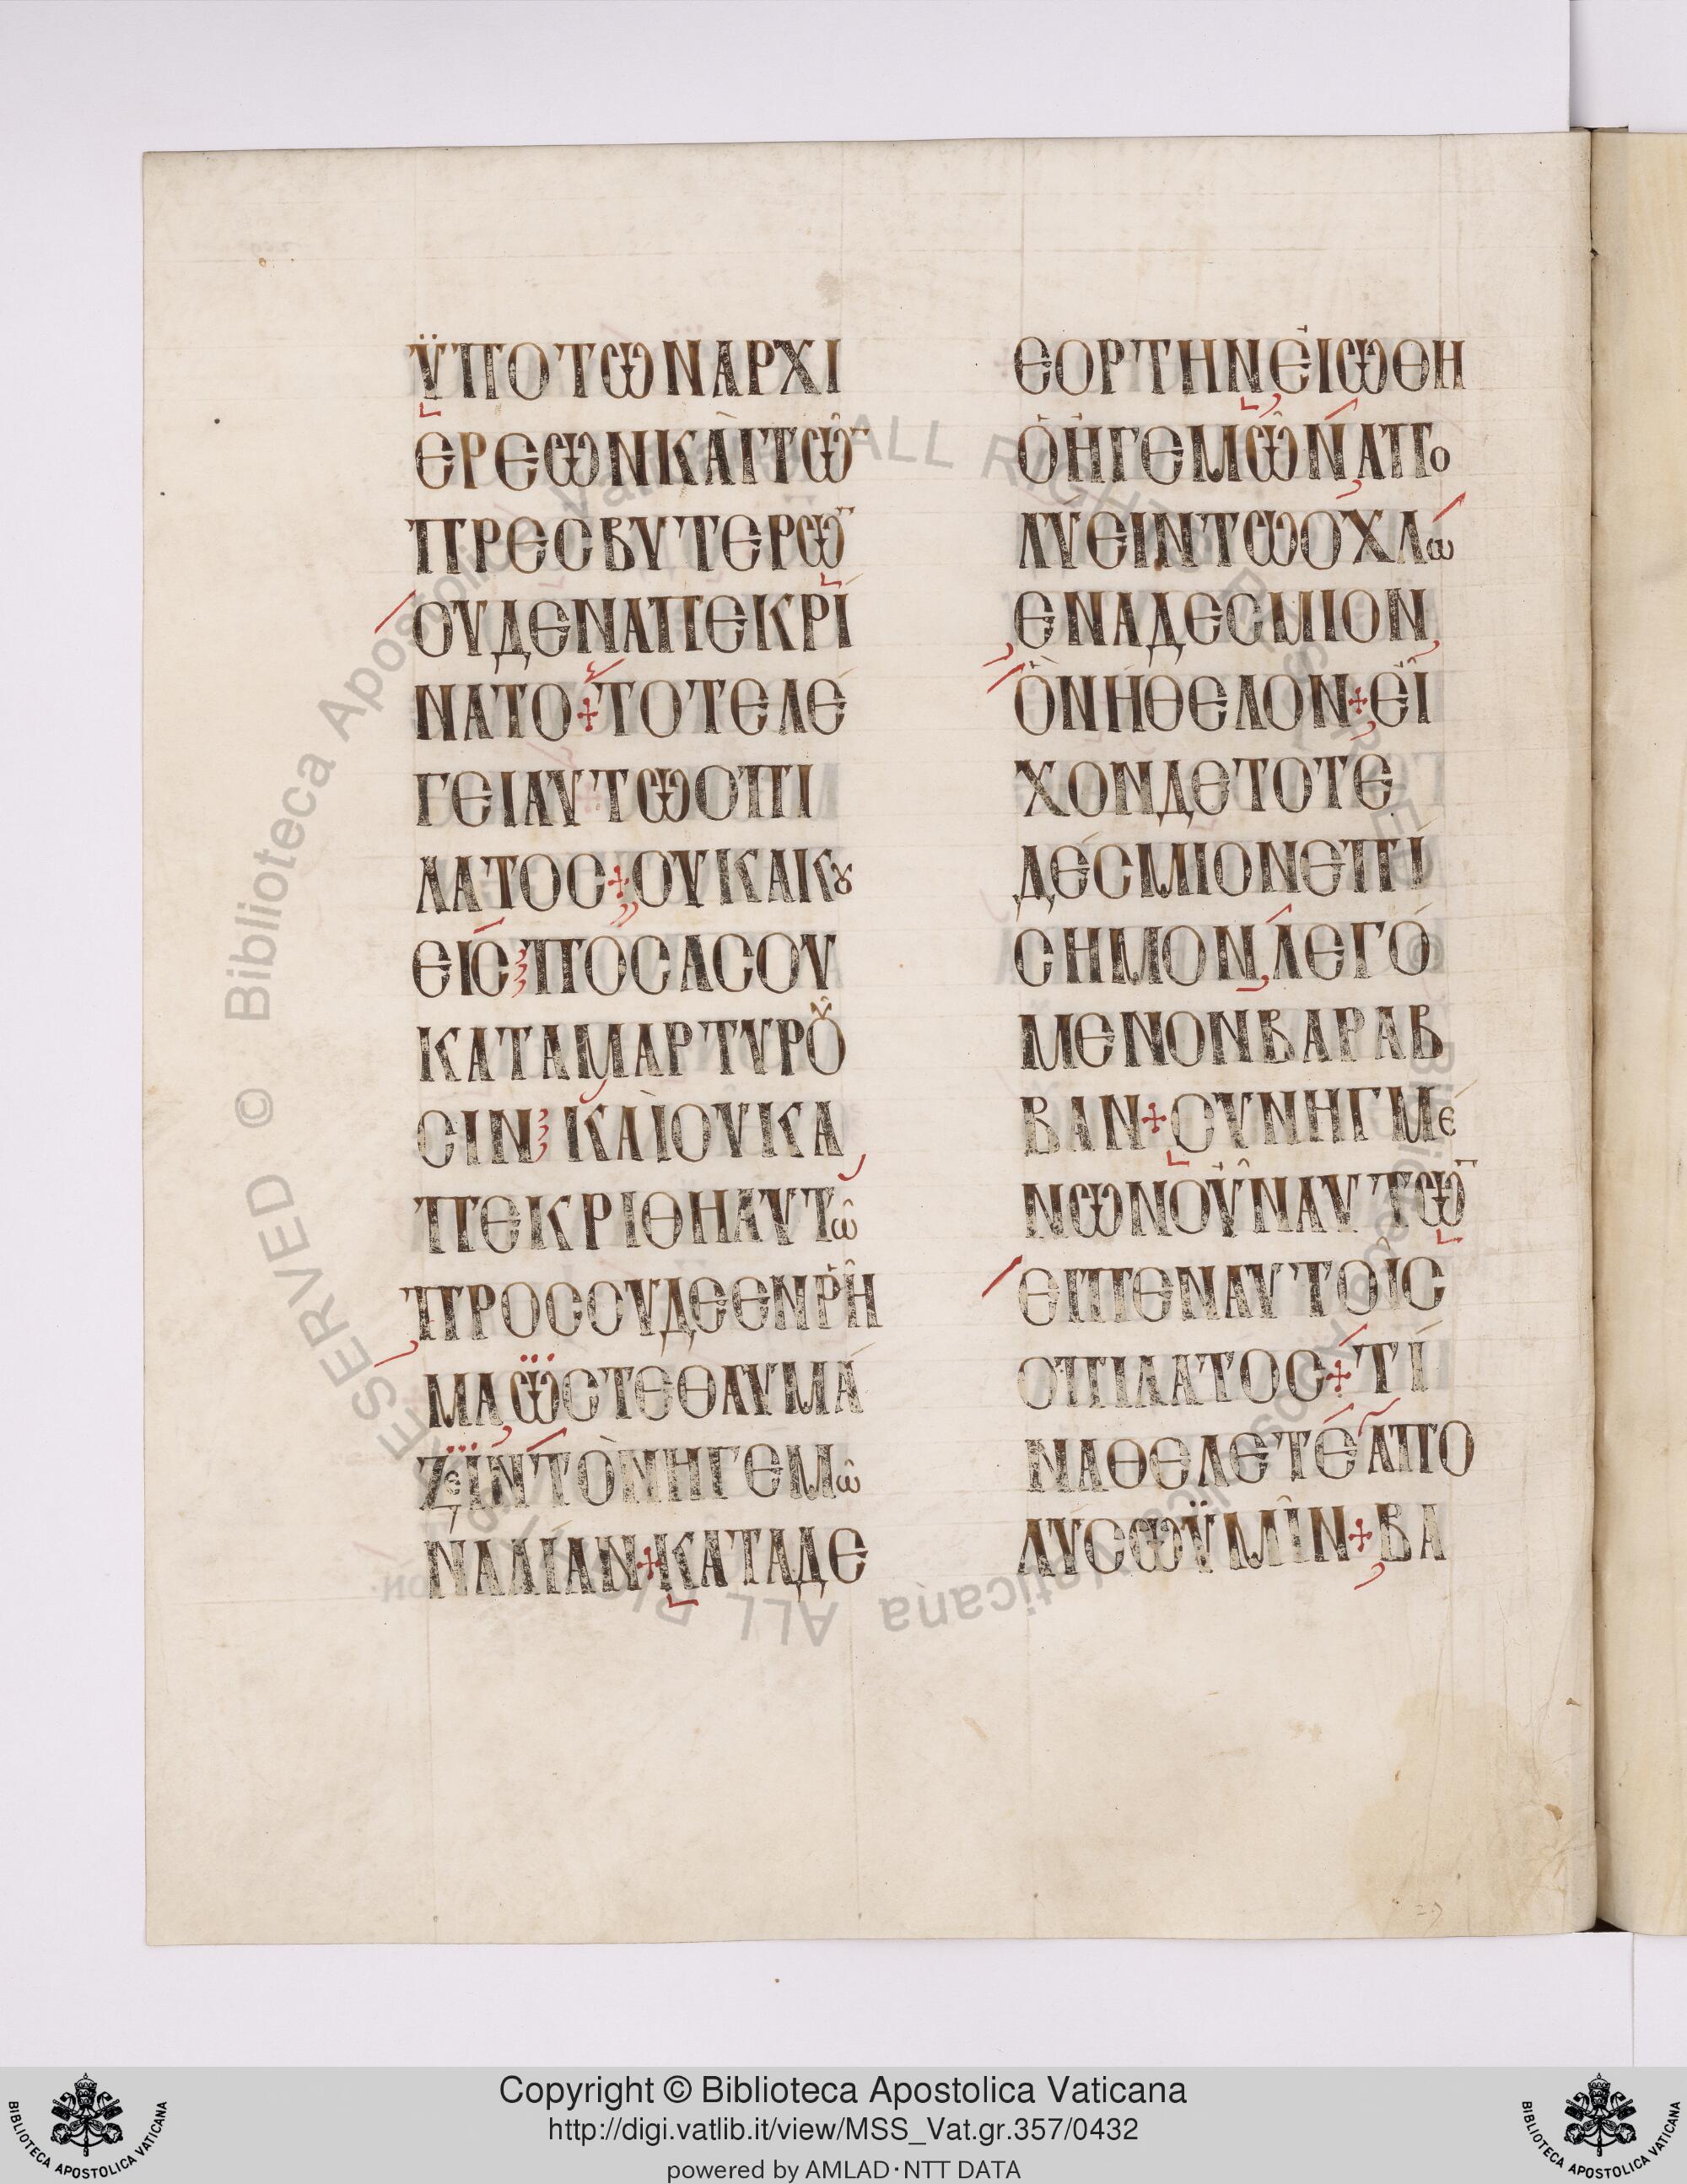 ΫΠΟΤΩΝΑΡΧΙ
ΕΡΕΩΝΚΑῚΤΩ̂¯
ΠΡΕСΒΥΤΕΡΩ¯
ΟΥΔΕΝΑΠΕΚΡΊ
ΝΑΤΟ+ΤΟΤΕΛΈ
ΓΕΙΑΥΤΩΟΠΙ
ΛΑΤΟС+ΟΥΚΑΚȣ
ΕΙС ΠΟСΑСΟΥ
ΚΑΤΑΜΑΡΤΥΡΟΥ͂
СΙΝ ΚΑῚΟΥΚΑ
ΠΕΚΡΙΘΗΑΥΤω̂
ΠΡΟСΟΥΔΕΕΝΡΗ̂
ΜΑΩСΤΕΘΑΥΜΆ
ΖεΙΝΤῸΝΗΓΕΜω̂
ΝΑΛΙΑΝ+ΚΑΤΑΔΕ
ΕΟΡΤΗΝΕΙΩΘΗ
ΟΗΓΕΜΩ̂ΝΑΠο
ΛΥΕΙΝΤΩΟΧΛω
ΕΝΑΔΕСΜΙΟΝ
ὋΝΗΘΕΛΟΝ+ΕΙ
ΧΟΝΔΕΤΟΤΕ
ΔΈСΜΙΟΝΕΠΊ
СΗΜΟΝΛΕΓΌ
ΜΕΝΟΝΒΑΡΑΒ
ΒΑΝ+СΥΝΗΓΜέ
ΝΩΝΟΥ̂ΝΑΥΤΩ̂¯
ΕΙΠΕΝΑΥΤΟΙС
ΟΠΙΛΑΤΟС+ΤΊ
ΝΑΘΕΛΕΤΕΑΠΟ
ΛΥСΩΫΜΙ̂Ν+ΒΑ
© Biblioteca Apostolica Vaticana ALL RIGHTS RESERVED
Copyright © Biblioteca Apostolica Vaticana
http://digi.vatlib.it/view/MSS_Vat.gr.357/0432
powered by AMLAD·NTT DATA
BIBLIOTECA APOSTOLICA VATICANA
BIBLIOTECA APOSTOLICA VATICANA